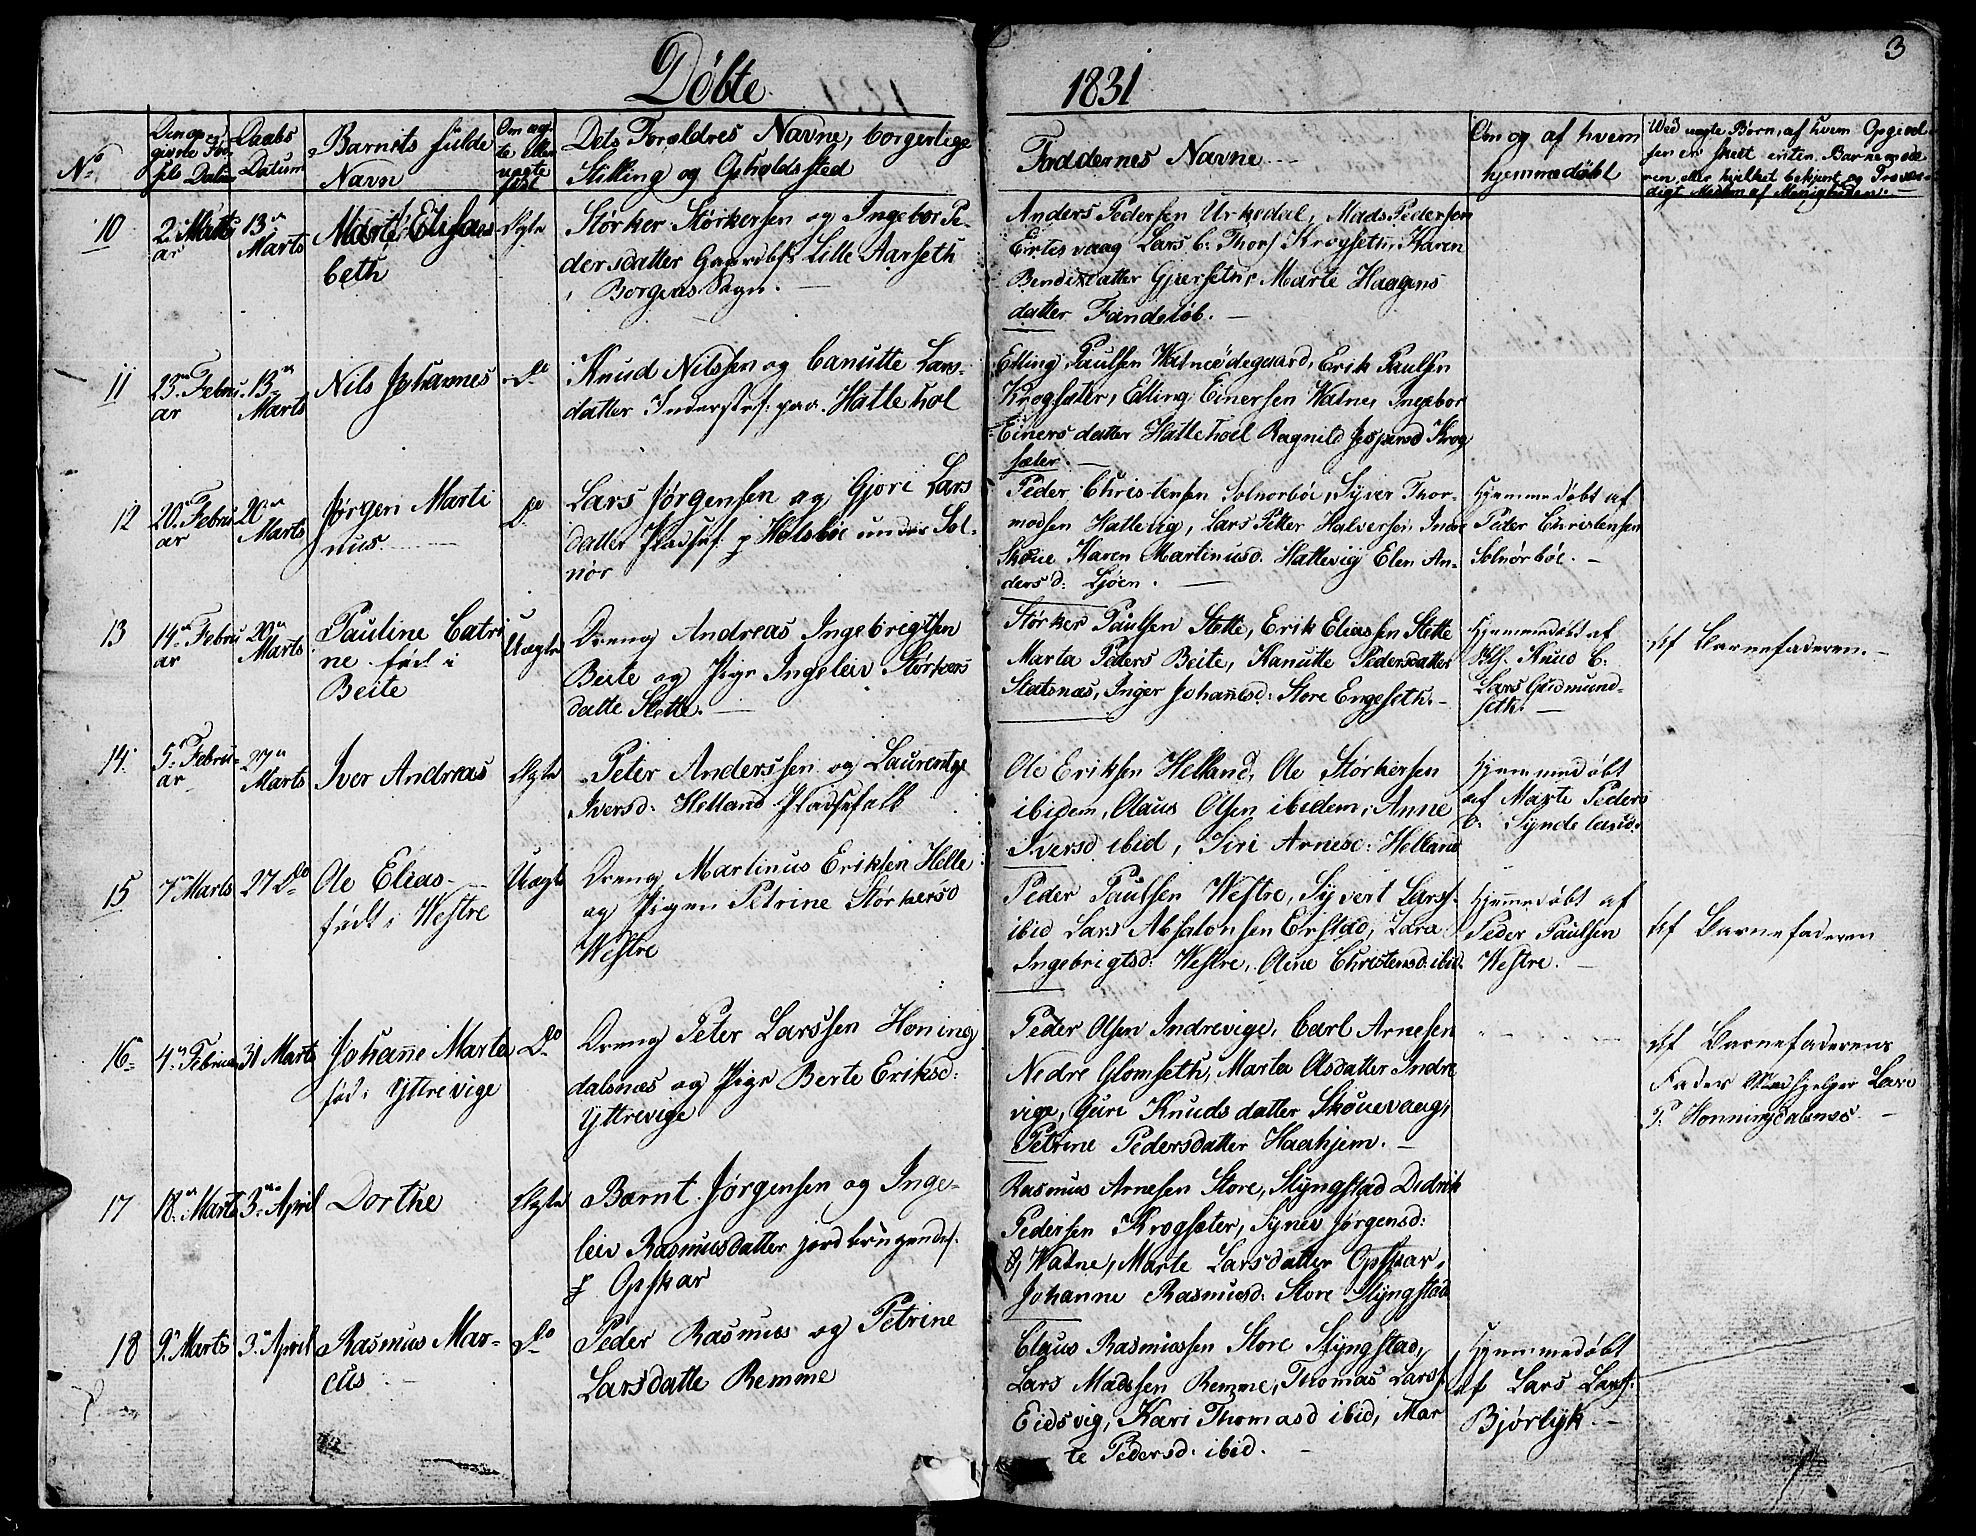 Döbte.
1831
3
No
Den op-
givne Fød-
sels Datum
Daabs
Datum
Barnets fulde
Navn
Om æg-
te eller
uægte
født
Dets Forældres Navne, borgerlige
Stilling og Opholdssted
Faddernes Navne
Om og af hvem
hjemmedøbt
Ved uægte Børn, af hvem Opgivel-
sen er skeet enten Barnemode
ren, eller hvilket bekjent og Troevær-
digt Medlem af Menigheden.
10
2 Marts
13n
Marts
Marte Elisa
beth
Ægte
Störker Störkersen og Ingebor Pe-
dersdatter Gaardbf: Lille Aarseth
i Borgens Sogn.
Anders Pedersen Urkedal, Mads Pedersen
vaag Lars C: Thors Krogseter, Karen
Bendixdatter Gjerseter Marte Haagens
datter Fandeløb.
11
23n Febru
ar
13n
Marts
Nils Johannes
Do
Knud Nilssen og Canutte Lars-
datter Inderstef: paa Hattehol
Elling Paulsen Watneødegaard, Erik Paulsen
Krogsæter, Elling Einersen Watne, Ingebor
Einersdatter Hattehoel Ragnild Jespersd Krog
sæter.
12
20n Febru
ar
20n
Marts
Jørgen Marti
nus.
Do
Lars Jørgensen og Gjori Lars
datter Pladsef. p Holsböe under Sol-
nör
Peder Christensen Solnorböe, Syver Thor-
modsen Hattevig, Lars Petter Halversen Indre
Skoue Karen Martinusd. Hattevig Elen An-
dersd: Sjöen.
Hjemmedöbt af
Peder Christensen
Solnörböe.
13
14n Febru
ar
20n
Marts
Pauline Catri
ne fød i
Beite
Uægte
Dreng Andreas Ingebrigtsen
Beite og Pige Ingeleiv Störkers
datte Slette.
Störker Paulsen Slette, Erik Eliassen Slette
Marta Peders Beite, Kanutte Pedersdatter
Statsnæs, Inger Johannesd: Store Engeseth.
Hjemmedöbt af
Klf. Knud C:
Lars Gudmund-
seth.
Af Barnefaderen.
14
5n Febru-
ar
27n
Marts
Iver Andreas
Ægte
Peter Anderssen og Laurentze
Iversd: Helland Pladsefolk
Ole Eriksen Helland, Ole Störkersen
ibidem, Olaus Olsen ibidem, Anne
Iversd ibid, Siri Arnesd: Helland
Hjemmedöbt
af Marte Peders
D. Syndeland.
15
7n Marts
27 Do
Ole Elias
født i Westre
Uægte
Dreng Martinus Eriksen Helle
og Pigen Petrine Störkersd
Westre
Peder Paulsen Westre, Syvert Larss.
ibid Lars Absalonsen Erstad, Lara
Ingebrigtsd: Westre, Oline Christensd: ibid.
Hjemmedöbt af
Peder Paulsen
Westre.
Af Barnefaderen
16
4n Februar
31 Marts
Johanne Marta
fød i Yttrevige
Do
Dreng Peter Larssen Honing
dalsnæs og Pige Berte Eriksd:
Yttrevige
Peder Olsen Indrevige, Carl Arnesen
Nedre Glomseth, Marta Olsdatter Indre
vige, Guri Knudsdatter Skouevaag,
Petrine Pedersdatter Haahjem.
Af Barnefaderens
Fader Medhjelper Lars
P. Honningdalsnes.
17
18n Marts
3n April
Dorthe
Ægte
Bernt Jörgensen og Inge-
leiv Rasmusdatter jordbrugendef.
p Opskar
Rasmus Arnesen Store, Slyngstad Didrik
Pedersen Krogsæter, Synev Jörgensd:
Watne, Marte Larsdatter Opskar,
Johanne Rasmusd: Store Slyngstad
18
9n Marts
3n April
Rasmus Mar-
cus
Do
Peder Rasmus og Petrine
Larsdatte Remme
Claus Rasmussen Store Slyngstad,
Lars Madssen Remme, Thomas Larss.
Eidsvig, Kari Thomasd ibid, Mar
te Pedersd: ibid.
Hjemmedöbt
af Lars Larss.
Bjørlyk.